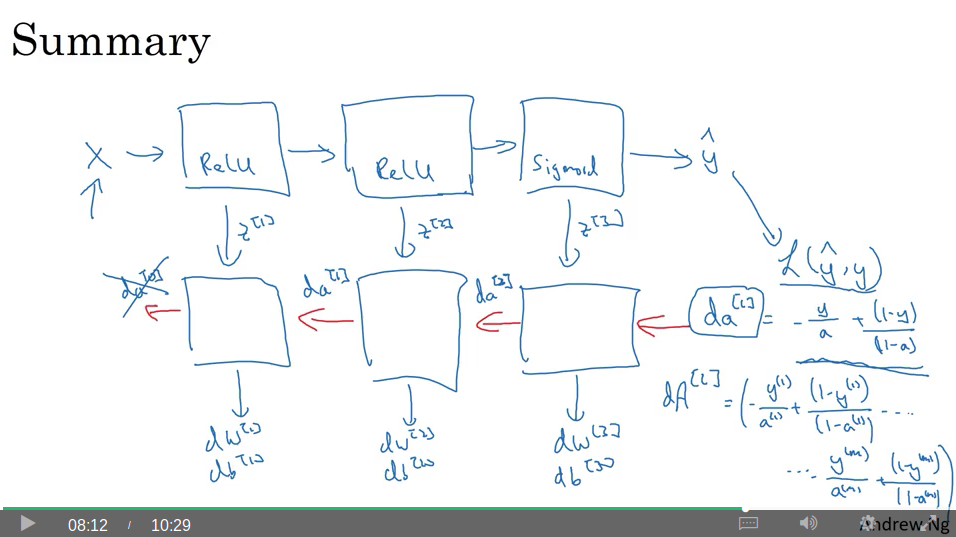 Summary
X → ReLU → ReLU → Sigmoid → ŷ
z^[1] z^[2] z^[3]
L(ŷ, y)
da^[0] da^[1] da^[2] da^[L] = - y/a + (1-y)/(1-a)
dA^[L] = (- y^(1)/a^(1) + (1-y^(1))/(1-a^(1)) ....
... y^(m)/a^(m) + (1-y^(m))/(1-a^(m)))
dw^[1] dw^[2] dw^[3]
db^[1] db^[2] db^[3]
08:12 / 10:29
Andrew Ng